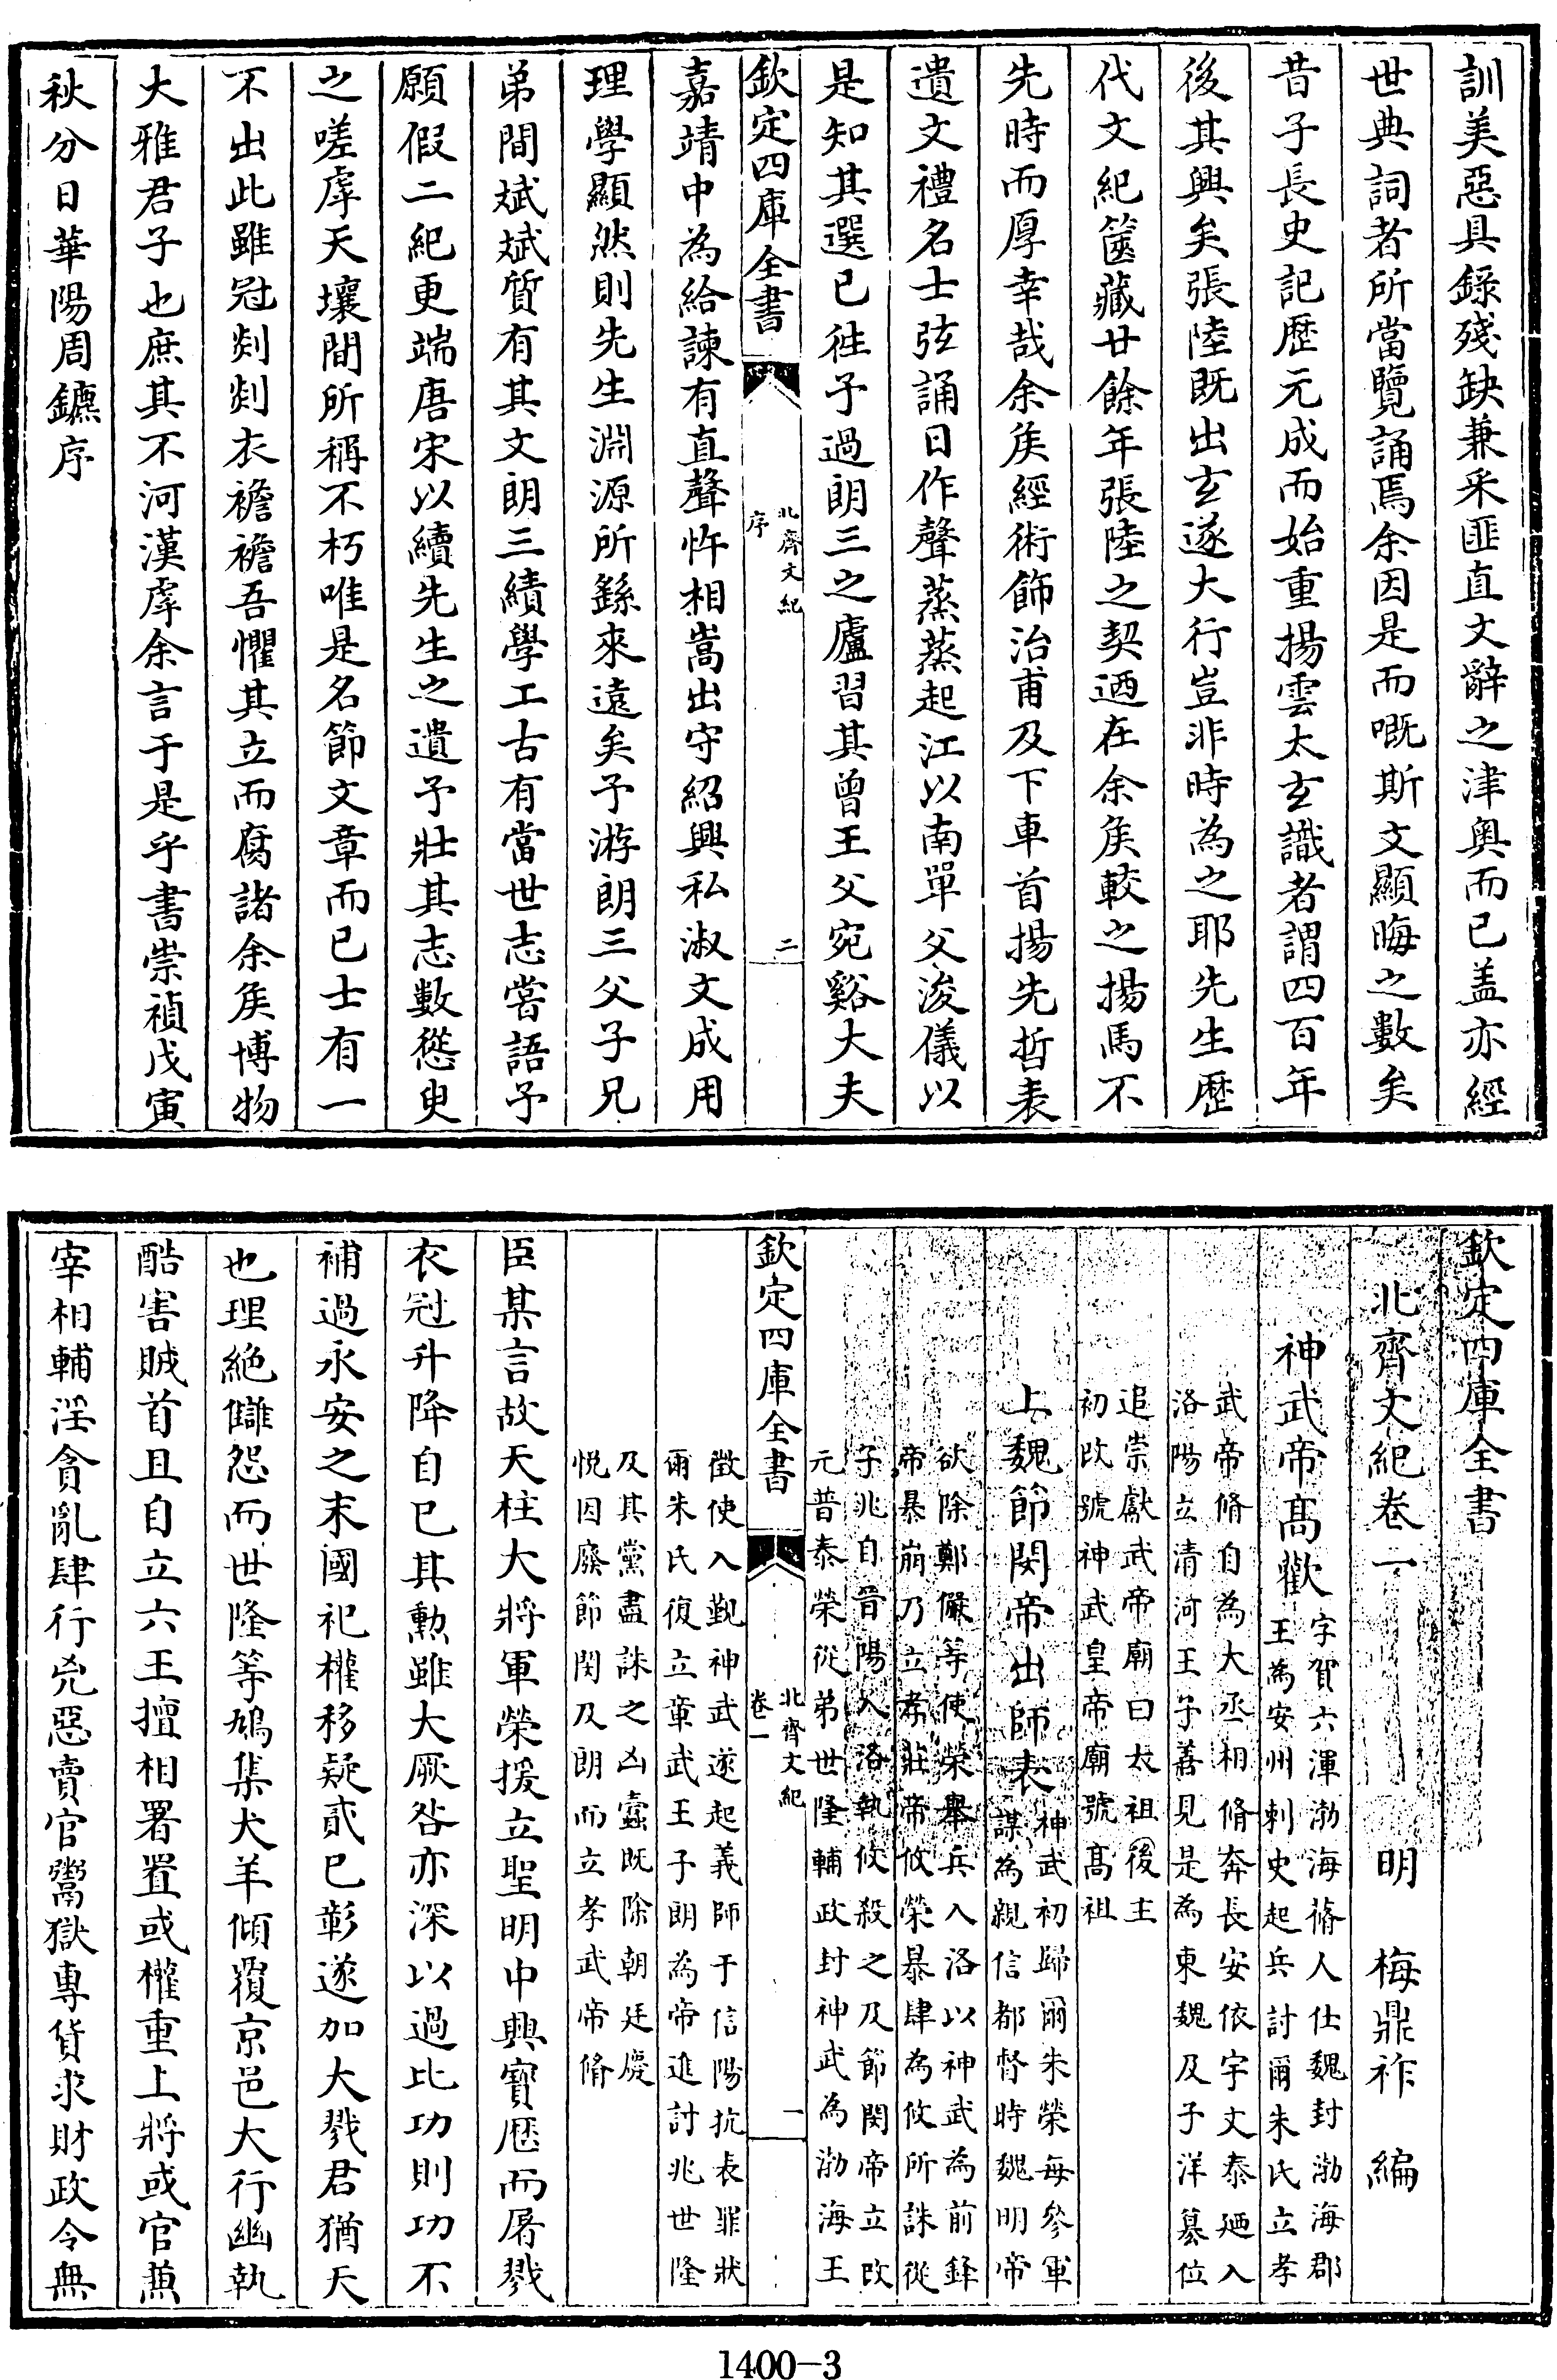 訓美惡具錄殘缺兼采匪直文辭之津奧而已盖亦經
世典詞者所當覽誦焉余因是而嘅斯文顯晦之數矣
昔子長史記歴元成而始重揚雲太玄識者謂四百年
後其興矣張陸既出玄遂大行豈非時為之耶先生歴
代文紀篋藏廿餘年張陸之契迺在余矦較之揚馬不
先時而厚幸哉余矦經術飾治甫及下車首揚先哲表
遺文禮名士弦誦日作聲蒸蒸起江以南單父浚儀以
是知其選已徃予過朗三之廬習其曾王父宛谿大夫
欽定四庫全書
北齊文紀
序
二
嘉靖中為給諫有直聲忤相嵩出守紹興私淑文成用
理學顯然則先生淵源所繇來遠矣予游朗三父子兄
弟間斌斌質有其文朗三績學工古有當世志嘗語予
願假二紀更端唐宋以續先生之遺予壯其志數慫臾
之嗟虖天壤間所稱不朽唯是名節文章而已士有一
不出此雖冠剡剡衣襜襜吾懼其立而腐諸余矦博物
大雅君子也庶其不河漢虖余言于是乎書崇禎戊寅
秋分日華陽周鑣序
欽定四庫全書
北齊文紀卷一
明 梅鼎祚 編
神武帝髙歡字賀六渾渤海蓨人仕魏封渤海郡
王為安州刺史起兵討爾朱氏立孝
武帝脩自為大丞相脩奔長安依宇文泰廼入
洛陽立清河王子善見是為東魏及子洋簒位
追崇獻武帝廟曰太祖後主
初改號神武皇帝廟號髙祖
上魏節閔帝出師表神武初歸爾朱榮每參軍
謀為親信都督時魏明帝
欲除鄭儼等使榮舉兵入洛以神武為前鋒
帝暴崩乃立孝莊帝攸榮暴肆為攸所誅從
子兆自晉陽入洛執攸殺之及節閔帝立改
元普泰榮從弟世隆輔政封神武為渤海王
欽定四庫全書
北齊文紀
卷一
一
徵使入覲神武遂起義師于信陽抗表罪狀
爾朱氏復立章武王子朗為帝進討兆世隆
及其黨盡誅之凶蠹既除朝廷慶
悦因廢節閔及朗而立孝武帝脩
臣某言故天柱大將軍榮援立聖明中興寶歴而屠戮
衣冠升降自已其勲雖大厥咎亦深以過比功則功不
補過永安之末國祀權移疑貳已彰遂加大戮君猶天
也理絶讎怨而世隆等鳩集犬羊傾覆京邑大行幽執
酷害賊首且自立六王擅相署置或權重上將或官兼
宰相輔淫貪亂肆行兇惡賣官鬻獄專貨求財政令無
1400-3